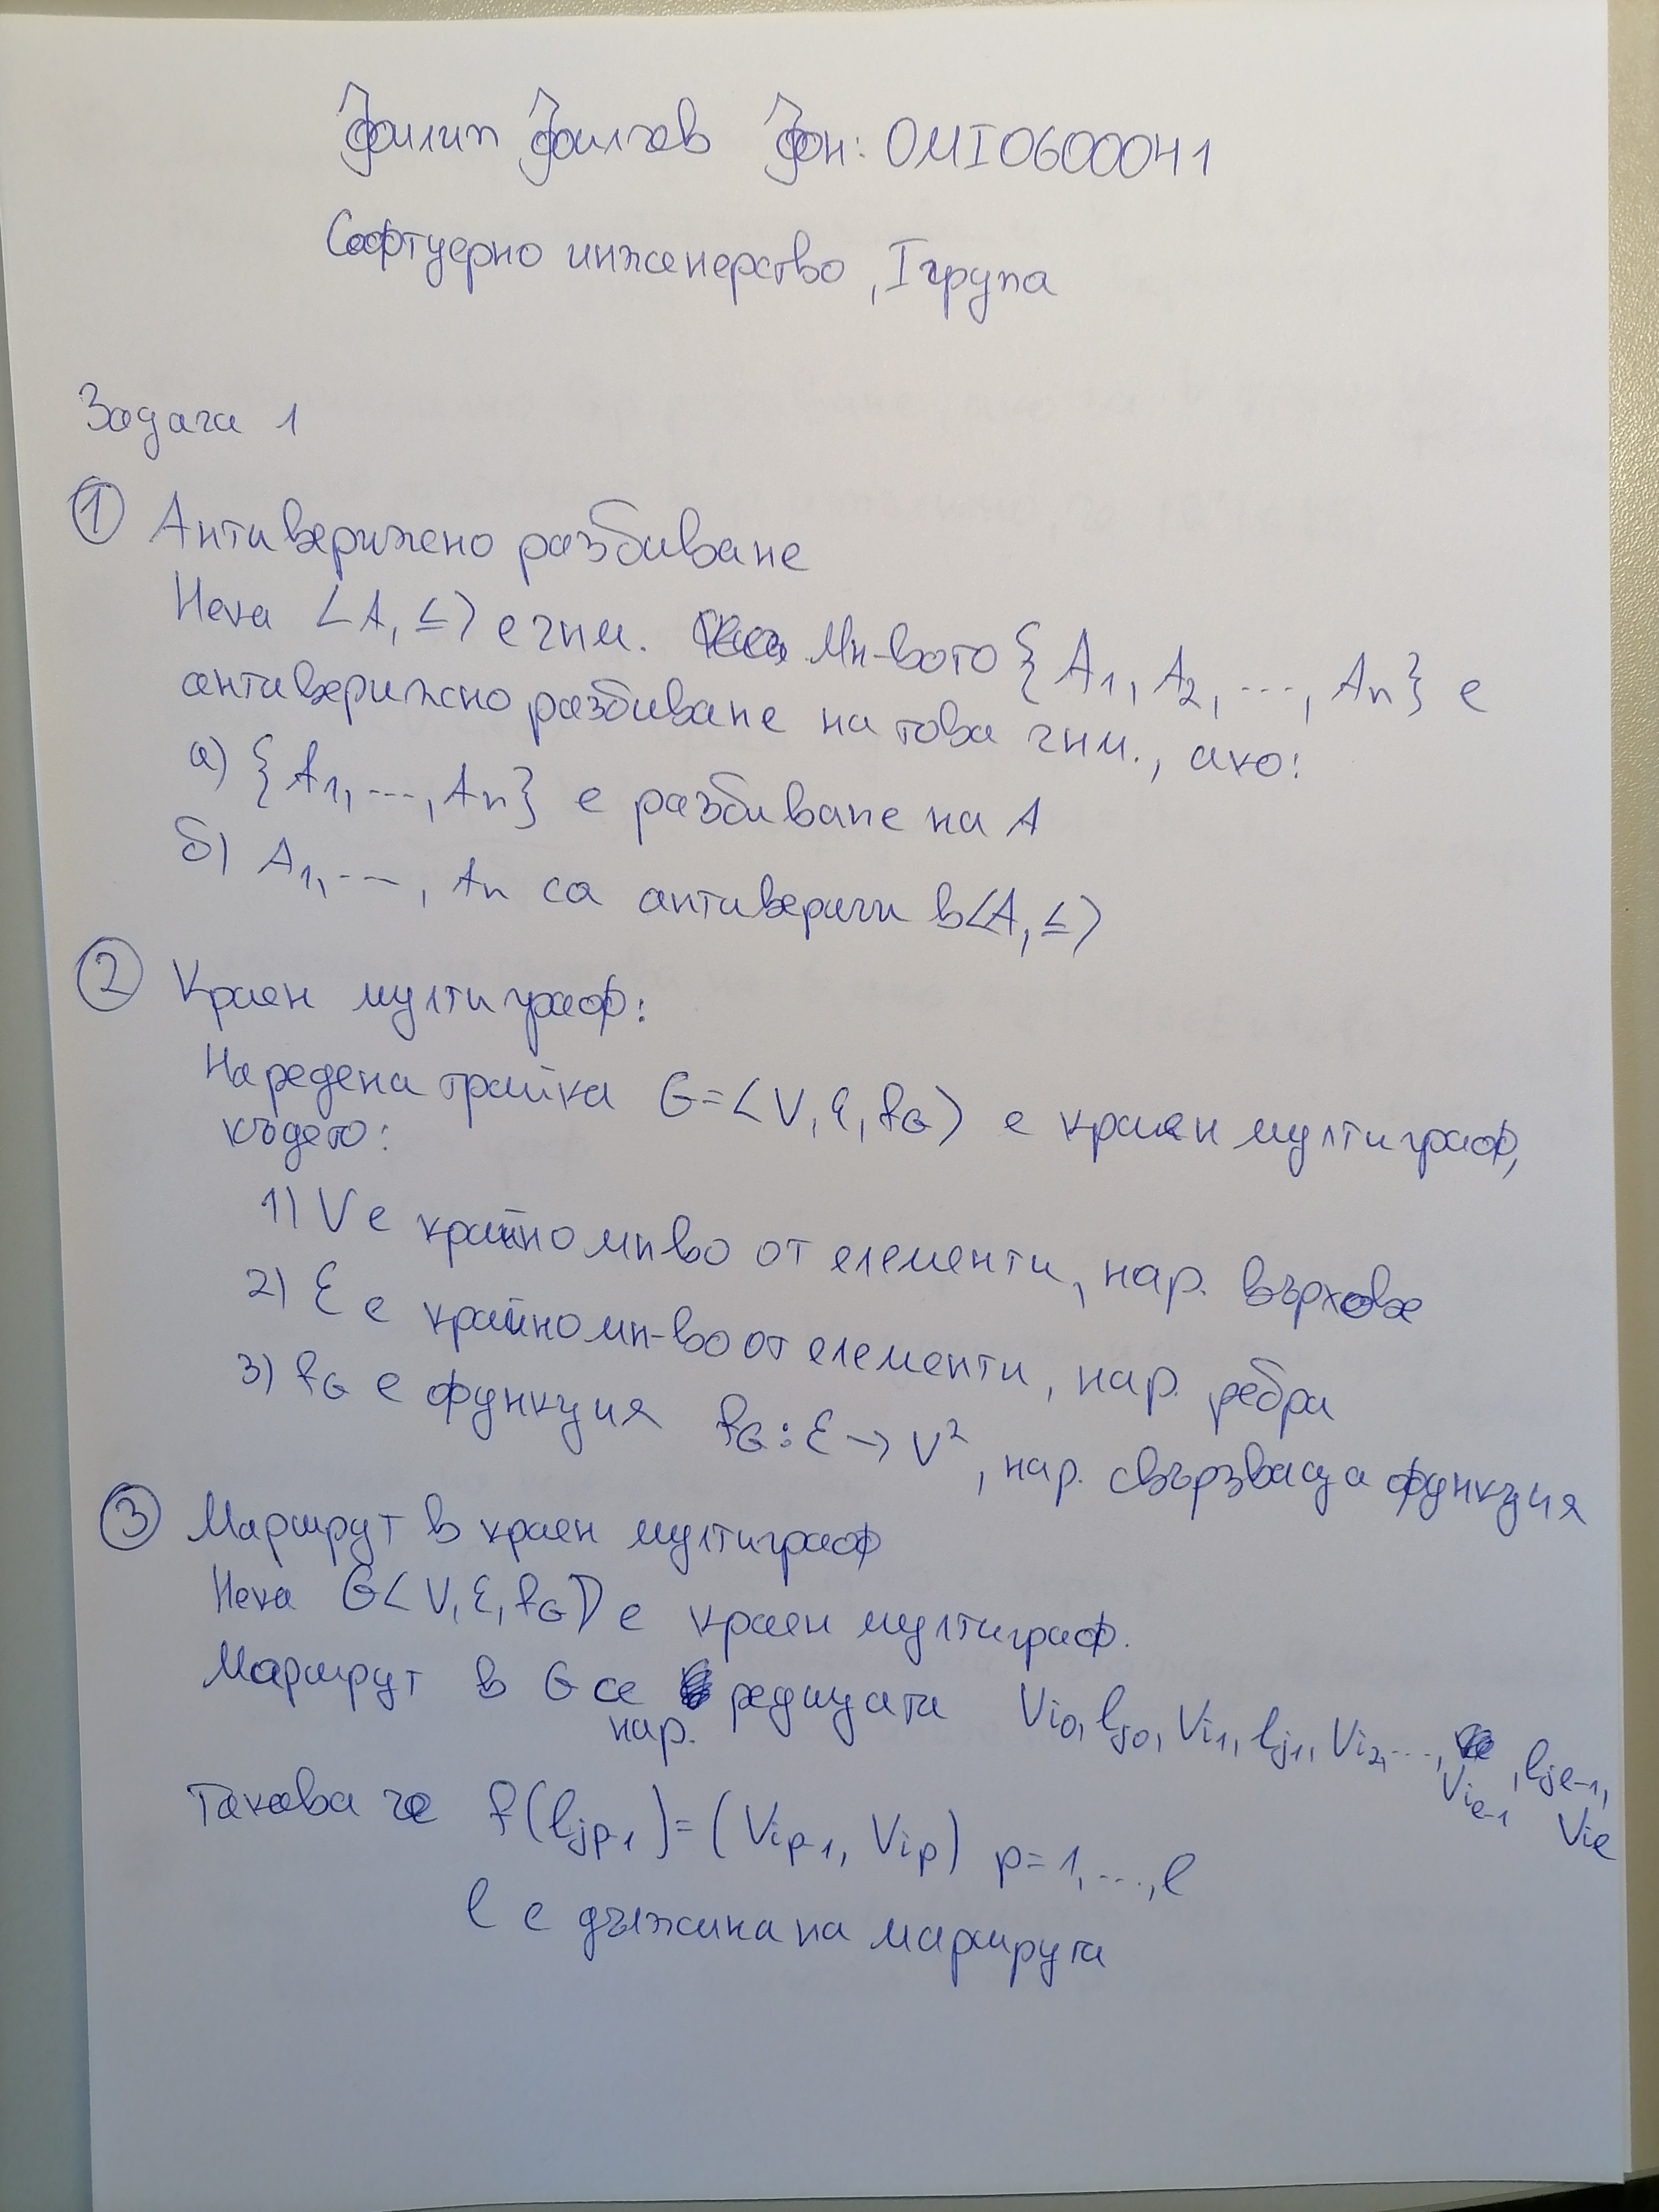 Филип Филчев Фон: 0MI0600041
Софтуерно инженерство, I група
Задача 1
① Антиверижно разбиване
Нека <A, ≤> е чнм. Мн-вото {A1, A2, ..., An} е
антиверижно разбиване на това чнм., ако:
а) {A1, ..., An} е разбиване на A
б) A1, ..., An са антивериги в <A, ≤>
② Краен мултиграф:
Наредена тройка G = <V, ℰ, fG> е краен мултиграф,
където:
1) V е крайно мн-во от елементи, нар. върхове
2) ℰ е крайно мн-во от елементи, нар. ребра
3) fG е функция fG: ℰ → V², нар. свързваща функция
③ Маршрут в краен мултиграф
Нека G<V, ℰ, fG> е краен мултиграф.
Маршрут в G се нар. редицата Vi0, lj0, Vi1, lj1, Vi2, ..., Vie-1, lje-1, Vie
Такава че f(ljp-1) = (Vip-1, Vip) p = 1, ..., l
l е дължина на маршрута